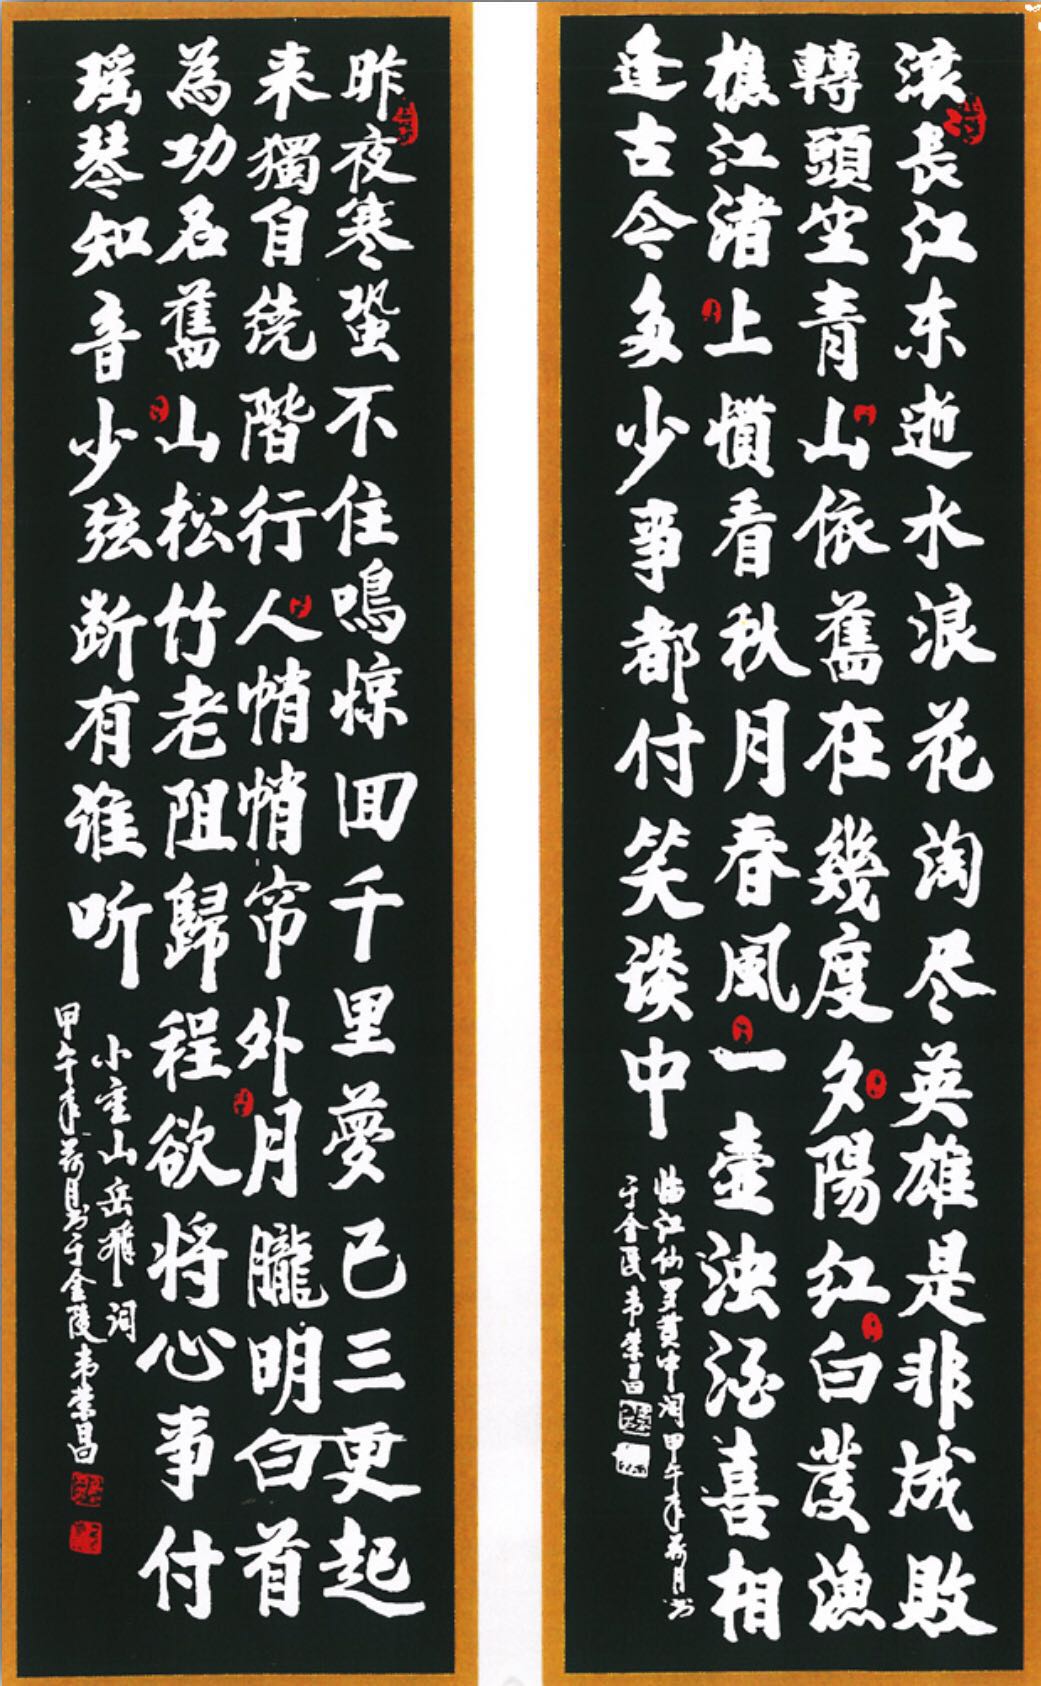 滚長江东逝水浪花淘尽英雄是非成敗
轉頭空青山依舊在幾度夕陽红白发漁
樵江渚上慣看秋月春風一壷浊酒喜相
逢古今多少事都付笑谈中
临江仙罗贯中词甲午年荷月书
于金陵韦荣昌
昨夜寒蛩不住鳴惊回千里夢已三更起
来獨自绕階行人悄悄帘外月朧明白首
為功名舊山松竹老阻歸程欲将心事付
瑶琴知音少弦断有谁听
小重山岳飛词
甲午年荷月书于金陵韦荣昌